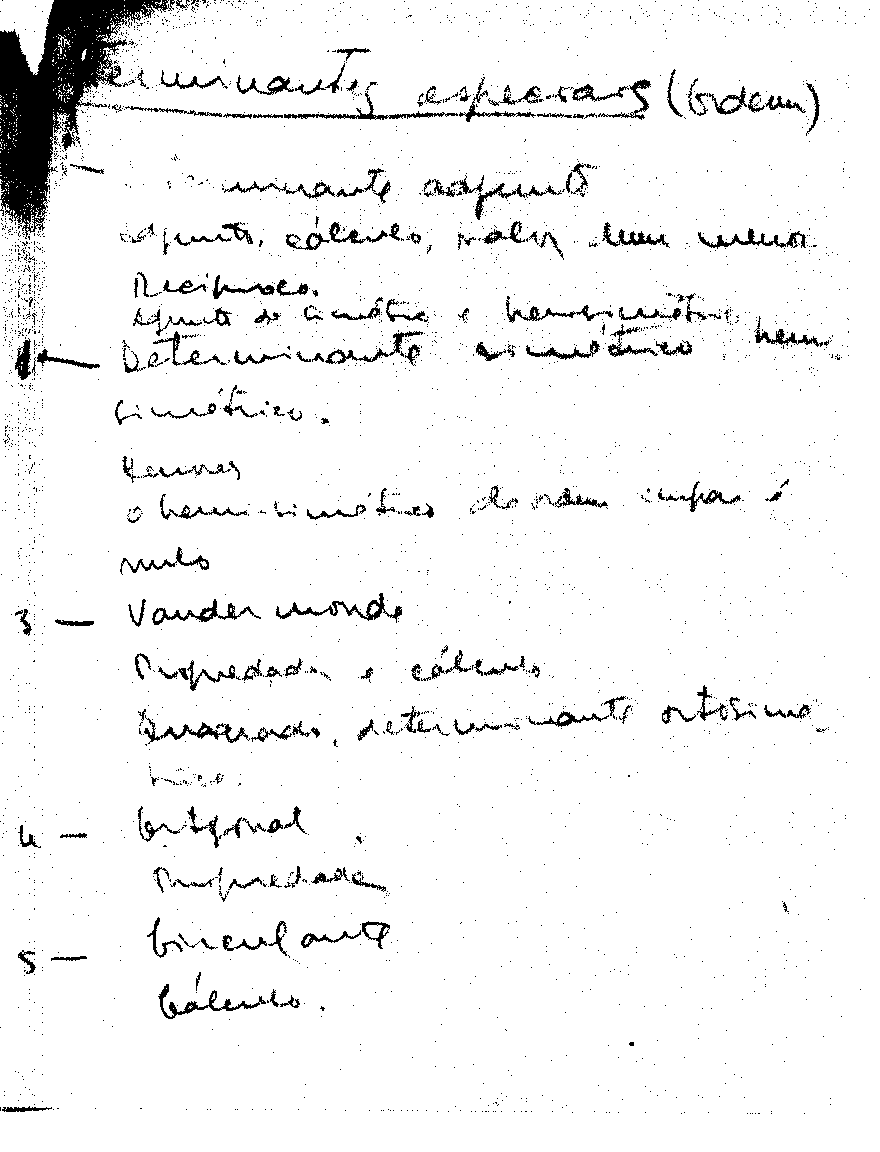 terminantes especiais (Ordem)
— minante adjunto
adjunto, cálculo, valor, menor
Recíproco.
Adjunto do simétrico e hemisimétrico
— Determinante simétrico hemi-
simétrico.
Menores
o hemi-simétrico de ordem impar é
nulo
3 — Vandermonde
Propriedade e cálculo
Quadrado, determinante ortosimé-
trico.
4 — Ortogonal
Propriedade
5 — Circulante
Cálculo.